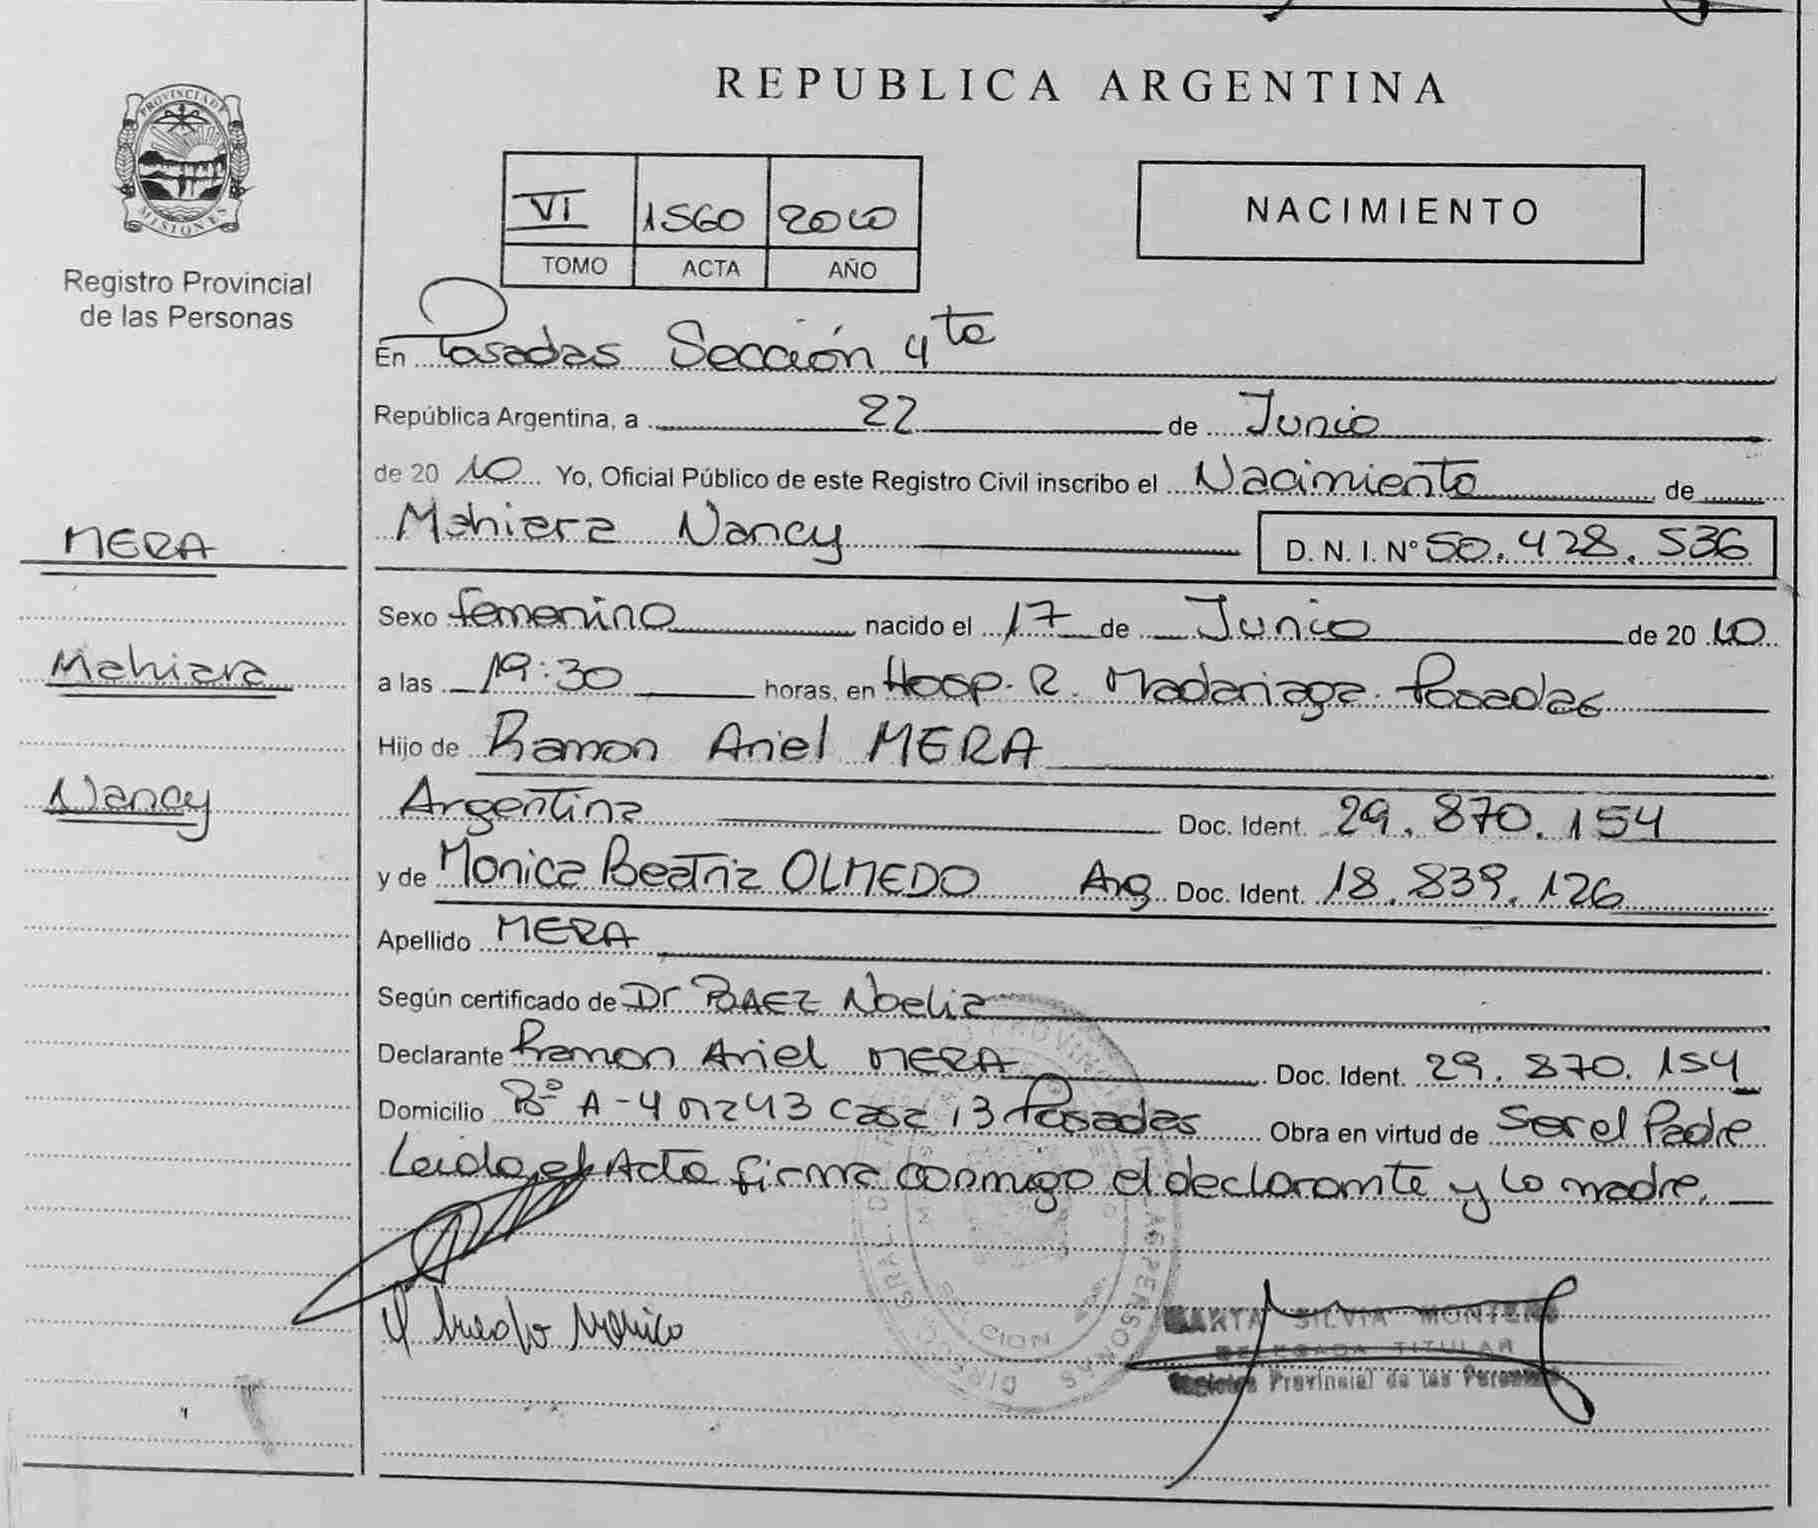 REPUBLICA ARGENTINA
PROVINCIA DE
MISIONES
Registro Provincial
de las Personas
VI 1560 2010
TOMO ACTA AÑO
NACIMIENTO
En Posadas Sección 4ta
República Argentina, a 22 de Junio
de 2010 Yo, Oficial Público de este Registro Civil inscribo el Nacimiento de
Mahiara Nancy D. N. I. N° 50.428.536
MERA
Mahiara
Nancy
Sexo femenino nacido el 17 de Junio de 2010
a las 19:30 horas, en Hosp. R. Madariaga. Posadas
Hijo de Ramon Ariel MERA
Argentina Doc. Ident. 29.870.154
y de Monica Beatriz OLMEDO Arg. Doc. Ident. 18.839.126
Apellido MERA
Según certificado de Dr BAEZ Noelia
Declarante Ramon Ariel MERA Doc. Ident. 29.870.154
Domicilio Bº A-4 mz 43 casa 13 Posadas Obra en virtud de Ser el Padre
Leida el Acta firma conmigo el declarante y la madre.
MARTA SILVIA MONTERO
DELEGADA TITULAR
Registro Provincial de las Personas